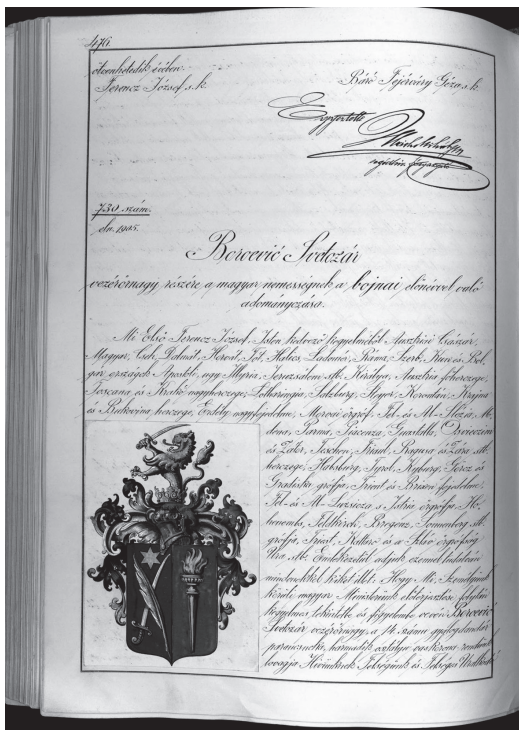 476.
ötvenhetedik évében.
Ferencz József s.k.
Báró Fejérváry Géza s.k.
Egyeztette
730. szám.
eln. 1905.
Boroević Svetozár
vezérőrnagy részére a magyar nemességnek a bojnai előnévvel való
adományozása.
Mi Első Ferencz József, Isten kedvező kegyelméből Ausztriai Császár,
Magyar, Cseh, Dalmát, Horvát, Tót, Halics, Ladomér, Ráma, Szerb, Kún és Bol-
gár országok Apostoli, úgy Illyria, Jeruzsálem stb. Királya, Ausztria főherczege,
Toscana és Krakó nagyherczege, Lotharingia, Salzburg, Styer, Korontán, Krajna
és Bukovina herczege, Erdély nagyfejedelme, Morvai őrgróf, Fel- és Al-Slezia, Mo-
dena, Parma, Piacenza, Guastalla, Osviecim
és Zator, Teschen, Friaul, Ragusa és Zara stb.
herczege, Habsburg, Tyrol, Kyburg, Görcz és
Gradiska grófja, Trient és Brixen fejedelme,
Fel- és Al-Luzsicza s Istria őrgrófja, Ho-
henembs, Feldkirch, Bregenz, Sonnenberg stb.
grófja, Triest, Kattaro és a Szláv őrgrófság
Ura, stb. Emlékezetül adjuk ezennel tudatván
mindenkivel kiket illet: Hogy Mi,
körüli magyar Ministerünk előterjesztése folytán
kegyelmes tekintetbe és figyelembe vévén Boroević
Svetozár vezérőrnagy, a 14. számú gyaloghadosztály
parancsnoka, harmadik osztályú vaskorona-rendünk
lovagja Hívünknek Felségünk és Felséges Uralkodó